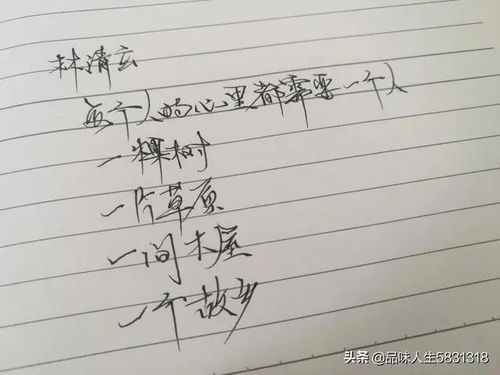 林清玄
每个人的心里都需要一个人
一棵树
一片草原
一间木屋
一个故乡
头条 @品味人生5831318